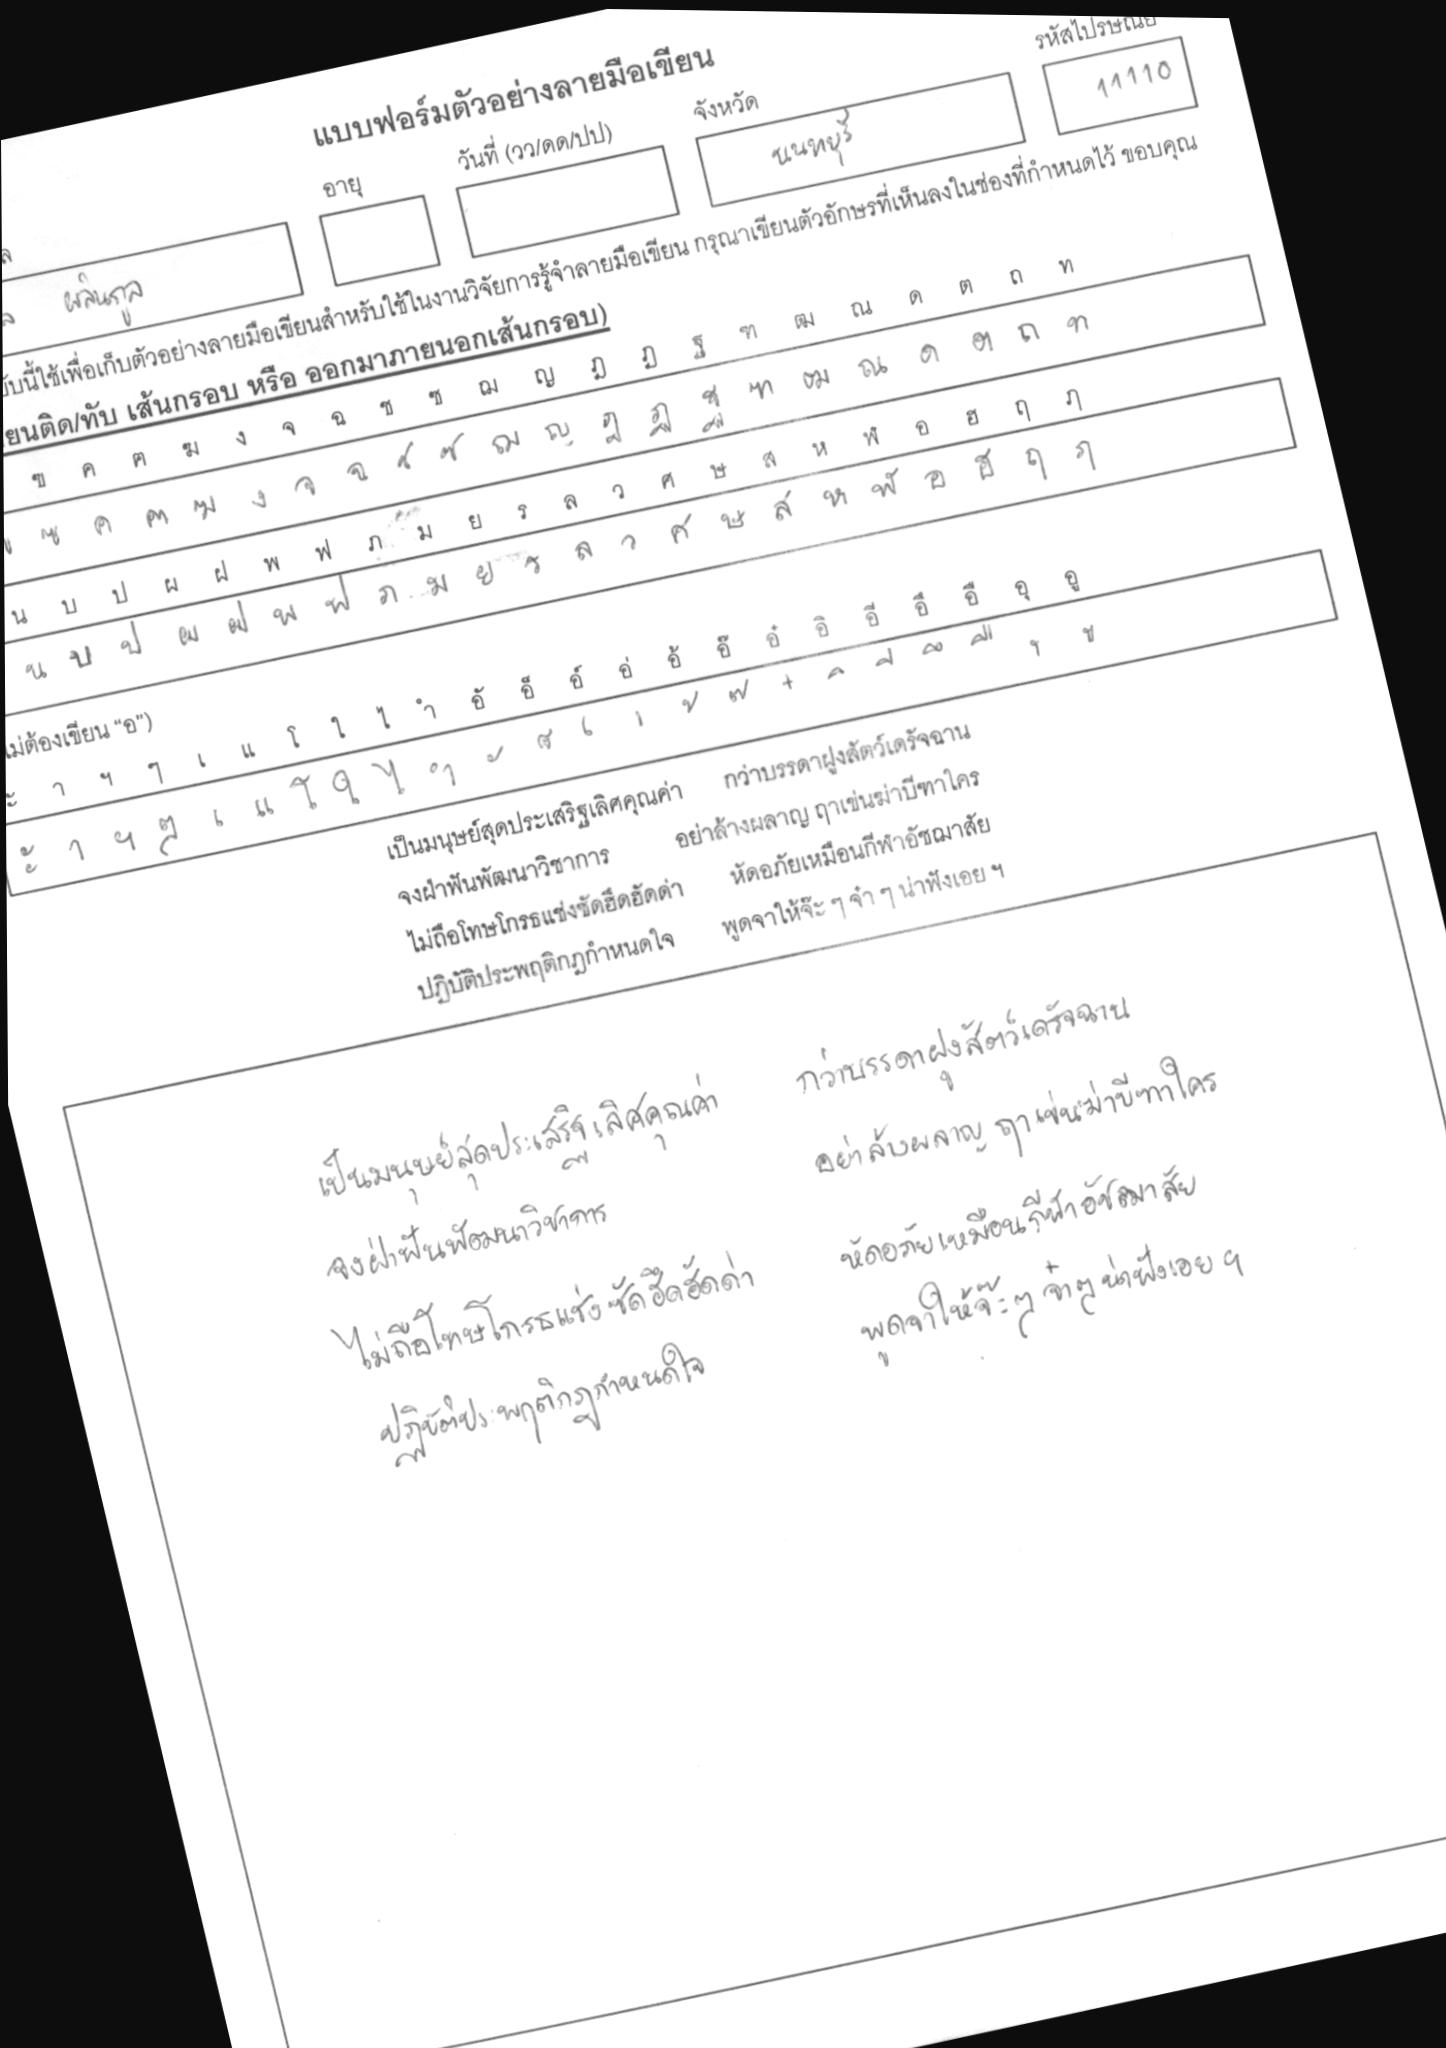 แบบฟอร์มตัวอย่างลายมือเขียน
อายุ วันที่ (วว/ดด/ปป) จังหวัด รหัสไปรษณีย์
นนทบุรี 11110
ฉบับนี้ใช้เพื่อเก็บตัวอย่างลายมือเขียนสำหรับใช้ในงานวิจัยการรู้จำลายมือเขียน กรุณาเขียนตัวอักษรที่เห็นลงในช่องที่กำหนดไว้ ขอบคุณ
เขียนติด/ทับ เส้นกรอบ หรือ ออกมาภายนอกเส้นกรอบ)
ฃ ค ฅ ฆ ง จ ฉ ช ซ ฌ ญ ฎ ฏ ฐ ฑ ฒ ณ ด ต ถ ท
ข ฃ ค ฅ ฆ ง จ ฉ ช ซ ฌ ญ ฎ ฏ ฐ ฑ ฒ ณ ด ต ถ ท
น บ ป ผ ฝ พ ฟ ภ ม ย ร ล ว ศ ษ ส ห ฬ อ ฮ ฤ ฦ
น บ ป ผ ฝ พ ฟ ภ ม ย ร ล ว ศ ษ ส ห ฬ อ ฮ ฤ ฦ
ไม่ต้องเขียน "อ")
ะ า ฯ ๆ เ แ โ ใ ไ ำ อั อ็ อ์ อ่ อ้ อ๊ อ๋ อิ อี อึ อื อุ อู
ะ า ฯ ๆ เ แ โ ใ ไ ำ ั ็ ์ ่ ้ ๊ ๋ ิ ี ึ ื ุ ู
เป็นมนุษย์สุดประเสริฐเลิศคุณค่า กว่าบรรดาฝูงสัตว์เดรัจฉาน
จงฝ่าฟันพัฒนาวิชาการ อย่าล้างผลาญ ฤาเข่นฆ่าบีฑาใคร
ไม่ถือโทษโกรธแช่งซัดฮึดฮัดด่า หัดอภัยเหมือนกีฬาอัชฌาสัย
ปฏิบัติประพฤติกฎกำหนดใจ พูดจาให้จ๊ะ ๆ จ๋า ๆ น่าฟังเอย ฯ
เป็นมนุษย์สุดประเสริฐเลิศคุณค่า กว่าบรรดาฝูงสัตว์เดรัจฉาน
จงฝ่าฟันพัฒนาวิชาการ อย่าล้างผลาญ ฤาเข่นฆ่าบีฑาใคร
ไม่ถือโทษโกรธแช่งซัดฮึดฮัดด่า หัดอภัยเหมือนกีฬาอัชฌาสัย
ปฏิบัติประพฤติกฎกำหนดใจ พูดจาให้จ๊ะๆ จ๋าๆ น่าฟังเอย ฯ